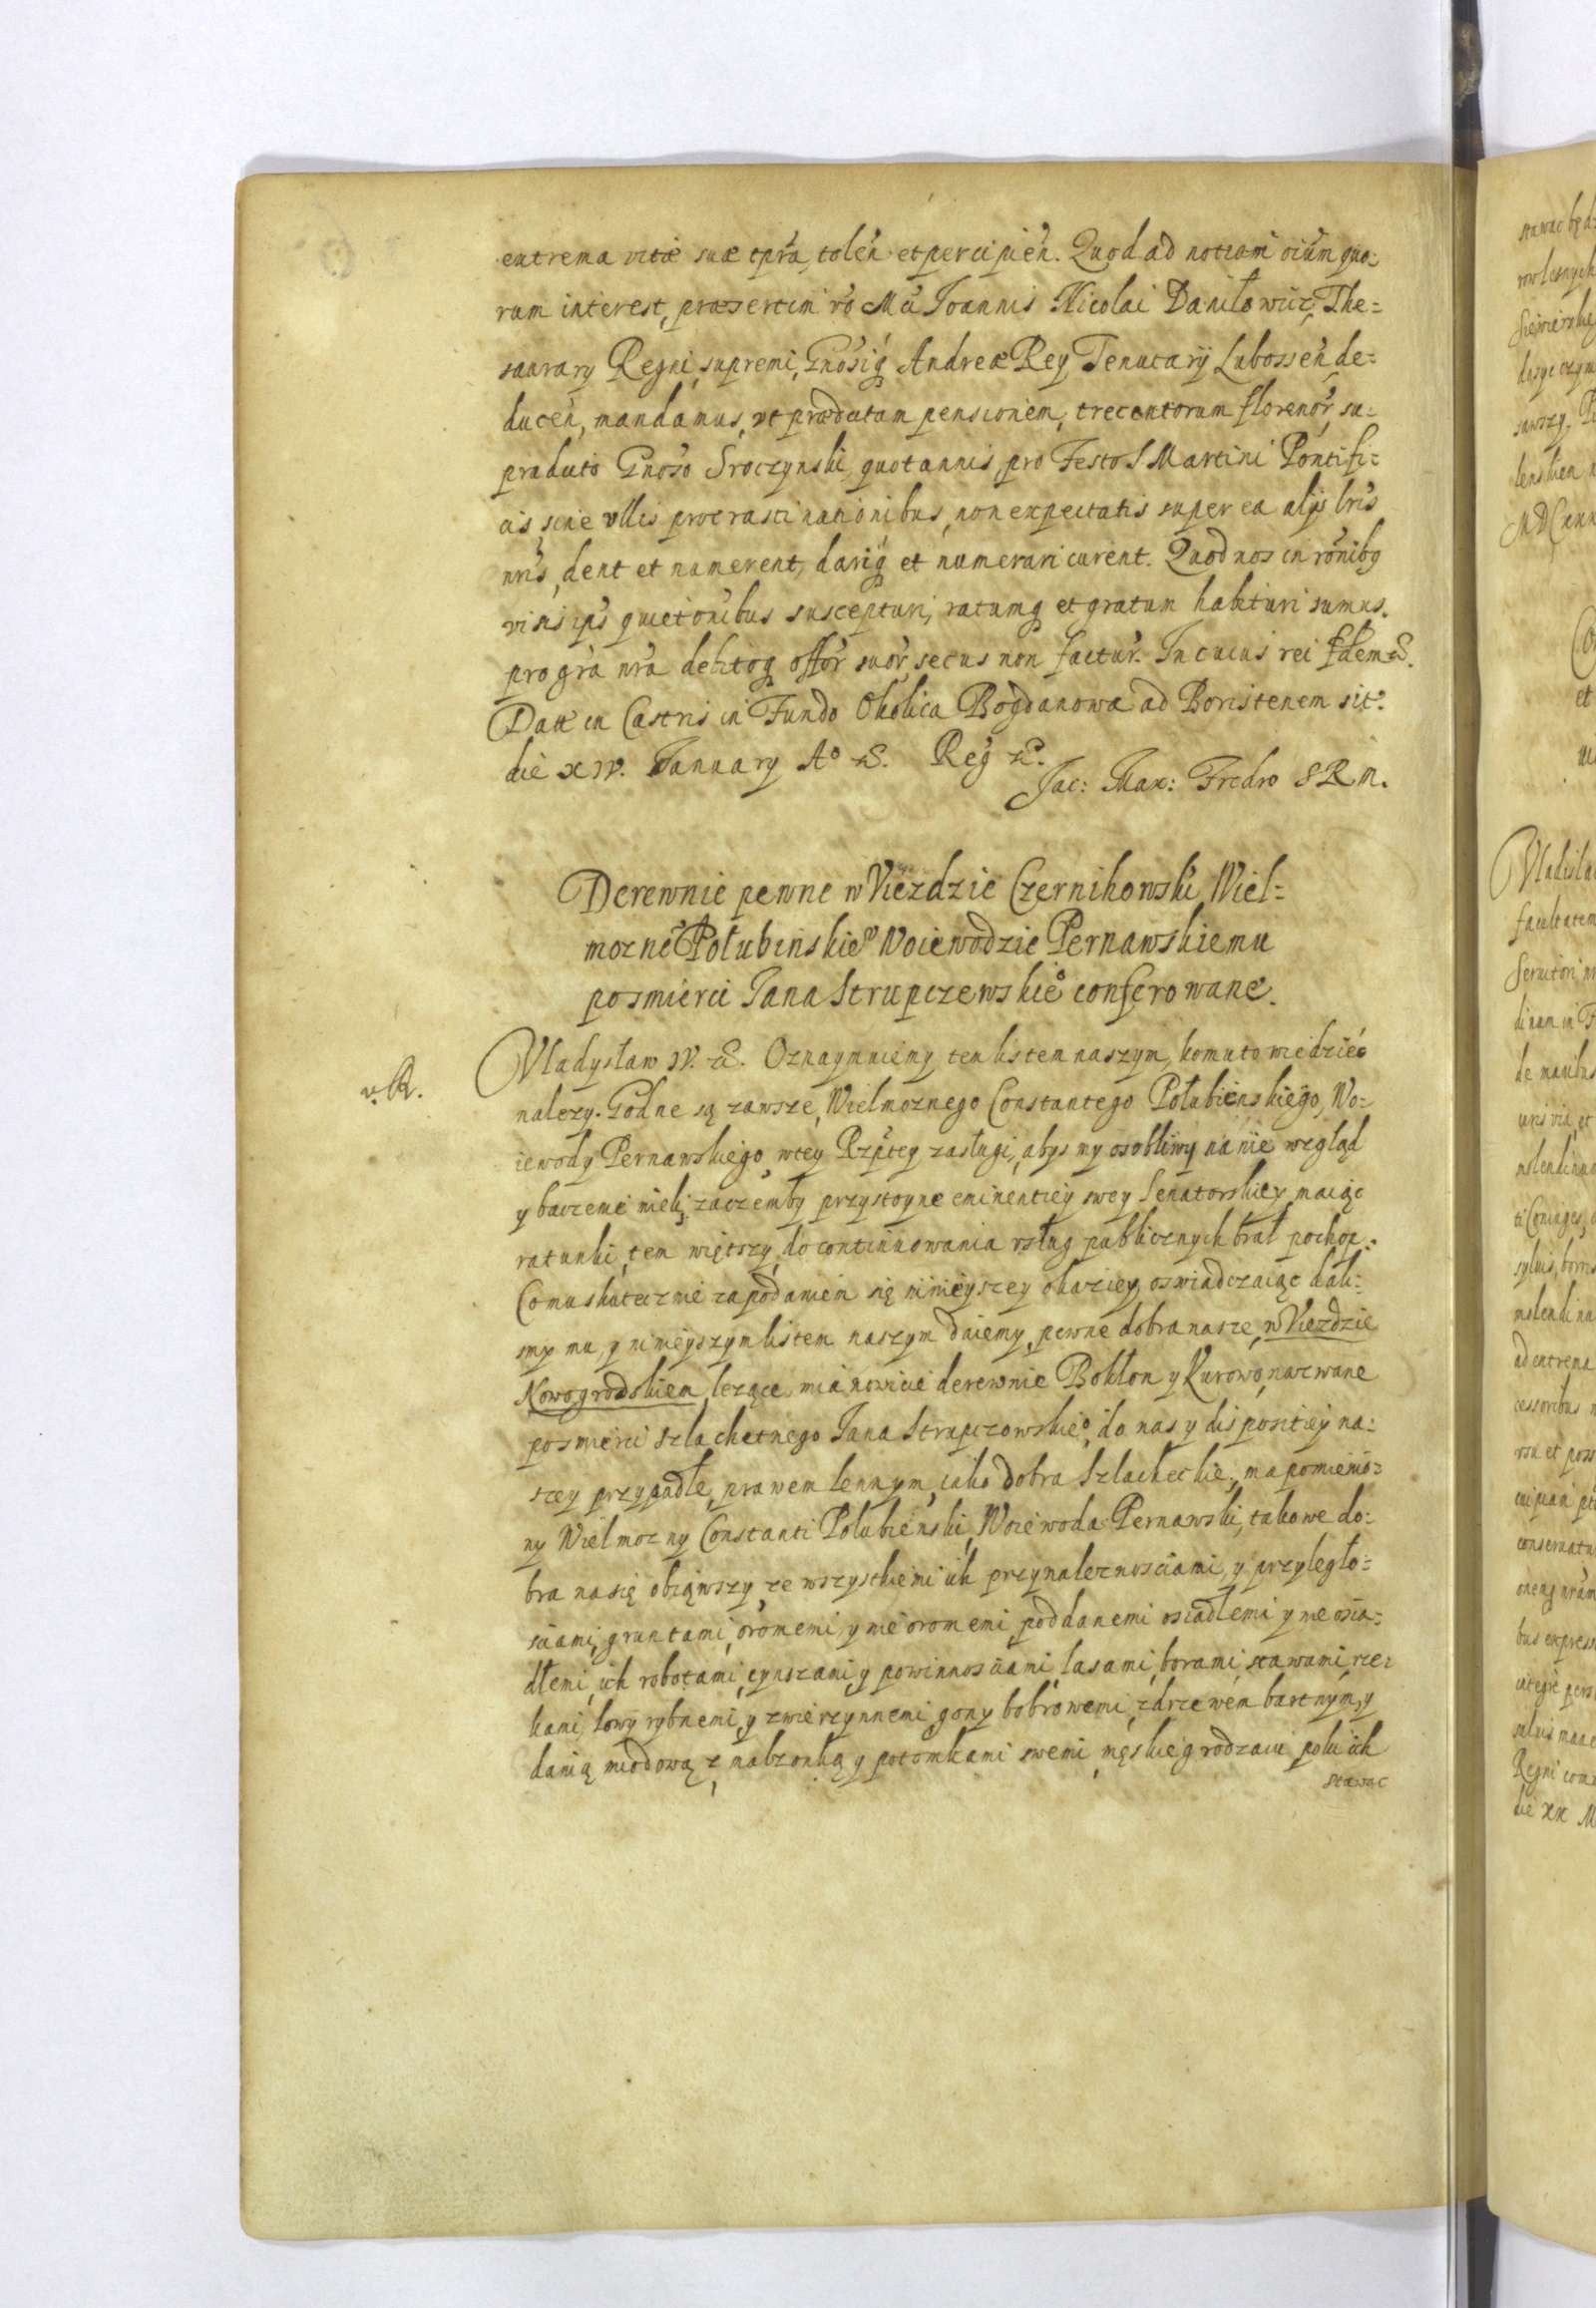 extrema vitæ suæ tpŕa, toleń et percipień. Quod ad notiam oiũm quo:
rum interest, præsertim ŕo Mci Joannis Nicolai Daniłowicz, The=
saurary Regni supremi, Gnosiq Andreæ Rey Tenutarÿ Lubosseń, de=
duceń, mandamus, vt prædictam pensionem, trecentorum florenoŕ, su=
pradicto Gnoso Sroczynski quotannis pro Festo S Martini Pontifi=
cis, sine vllis procrastinationibus, non expectatis super ea alijs lris
nris, dent et numerent, dariq et numerari curent. Quod nos in ronibq
visis ips quietonibus suscepturi, ratumq et gratum habituri sumus.
pro gra nra debitoq offor suor, secus non factur. In cuius rei fidem &.
Datt in Castris in Fundo Okolica Bogdanowa ad Boristenem sit:
die XIV. January Aº &. Reg &.
Jac: Max: Fredro SRM.
Derewnie pewne w Viezdzie Czernihowski Wiel=
mozne Połubinskieº Woiewodzie Pernawskiemu
posmierci Jana Strupczewskieº conferowane.
v. R.
Vladysław IV. &. Oznaymuiemy ten listem naszym, komu to wiedziec
nalezy. Godne są zawsze, Wielmoznego Constantego Połubienskiego, Wo=
iewody Pernawskiego, wtey Rzptey zasługi, abys my osobliwy nanie wzgląd
y baczenie mieli, zaczemby przystoyne eminentiey swey Senatorskiey maiąc
ratunki, tem większy, do continuowania vsług publicznych brał pochop.
Co mu skutecznie zapodaniem się ninieyszey okaziey oswiadczaiąc kali=
smy mu, y ninieyszym listem naszym daiemy, pewne dobra nasze, w Viezdzie
Nowogrodskiem lezące mianowicie derewnie Bokłon y Kurowo, nazwane
posmierci szlachetnego Jana Strupczowskieº, do nas y dispositiey na:
szey przypadłe, prawem lennym, iako dobra Szlacheckie, ma pomienio=
ny Wielmozny Constanti Połubienski, Woiewoda Pernawski, takowe do:
bra nasię obiąwszy, ze wszystkiemi ich przynaleznosciami, y przyległo=
sciami, gruntami, oromemi, y nie oromemi, poddanemi osiadłemi y nie osia=
dłemi, ich robotami, czynszami, y powinnosciami, lasami, borami, stawami, rze=
kami, łowy rybnemi, y zwierzynnemi, gony bobrowemi, zdrzewem bartnym, y
danią miodową, z małzonką y potomkami swemi, męskieg rodzaiu poki ich
stawac